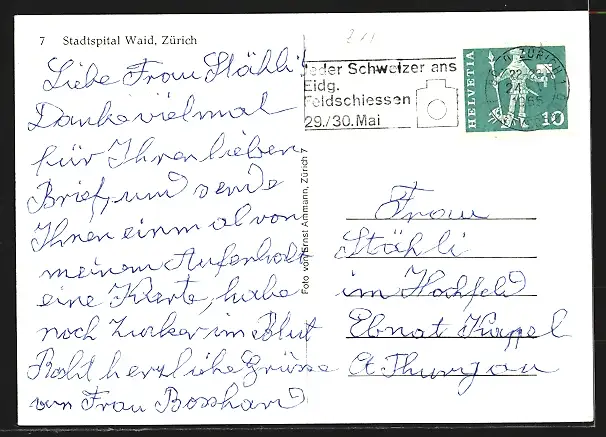 7 Stadtspital Waid, Zürich
Liebe Frau Stähli!
Danke vielmal
für Ihren lieben
Brief, und sende
Ihnen einmal von
meinem Aufenhalt
eine Karte, habe
noch Zucker im Blut
Recht herzliche Grüsse
von Frau Bosshard
Foto von Ernst Ammann, Zürich 7
Jeder Schweizer ans
Eidg.
Feldschiessen
29./30. Mai
HELVETIA
10
Frau
Stähli
im Hochfeld
Ebnat Kappel
Ct. Thurgau